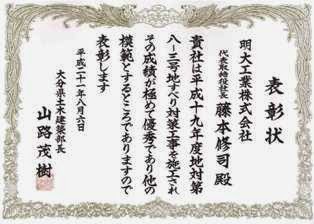 表彰状
明大工業株式会社
代表取締役社長 藤本修司 殿
貴社は平成十九年度地対第
八ー三号地すべり対策工事を施工され
その成績が極めて優秀であり他の
模範とするところでありますので
表彰します
平成二十一年八月六日
大分県土木建築部長
山路茂樹